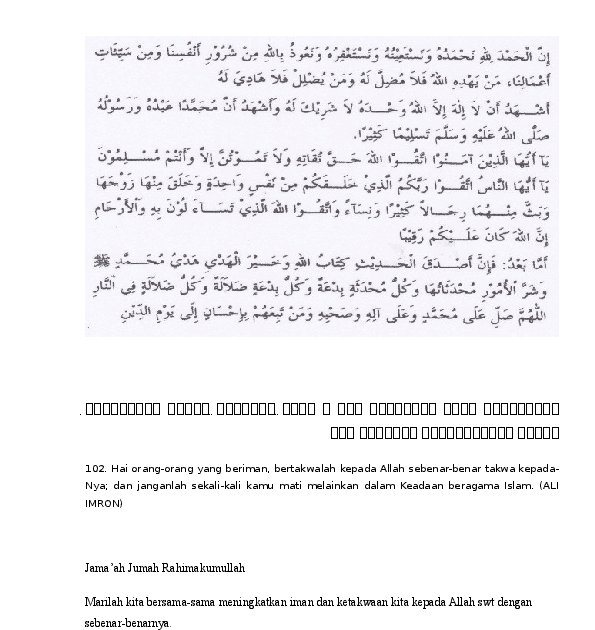 إِنَّ الْحَمْدَ لِلَّهِ نَحْمَدُهُ وَنَسْتَعِيْنُهُ وَنَسْتَغْفِرُهُ وَنَعُوذُ بِاللهِ مِنْ شُرُوْرِ أَنْفُسِنَا وَمِنْ سَيِّئَاتِ
أَعْمَالِنَا، مَنْ يَهْدِهِ اللهُ فَلاَ مُضِلَّ لَهُ وَمَنْ يُضْلِلْ فَلاَ هَادِيَ لَهُ
أَشْهَدُ أَنْ لاَ إِلَهَ إِلاَّ اللهُ وَحْدَهُ لاَ شَرِيْكَ لَهُ وَأَشْهَدُ أَنَّ مُحَمَّدًا عَبْدُهُ وَرَسُوْلُهُ
صَلَّى اللهُ عَلَيْهِ وَسَلَّمَ تَسْلِيْمًا كَثِيْرًا.
يَآ أَيُّهَا الَّذِيْنَ آمَنُوْا اتَّقُوْا اللهَ حَقَّ تُقَاتِهِ وَلاَ تَمُوْتُنَّ إِلاَّ وَأَنْتُمْ مُسْلِمُوْنَ
يَآ أَيُّهَا النَّاسُ اتَّقُوْا رَبَّكُمُ الَّذِيْ خَلَقَكُمْ مِنْ نَفْسٍ وَاحِدَةٍ وَخَلَقَ مِنْهَا زَوْجَهَا
وَبَثَّ مِنْهُمَا رِجَالاً كَثِيْرًا وَنِسَآءً وَاتَّقُوْا اللهَ الَّذِيْ تَسَآءَلُوْنَ بِهِ وَالأَرْحَامِ
إِنَّ اللهَ كَانَ عَلَيْكُمْ رَقِيْبًا
أَمَّا بَعْدُ: فَإِنَّ أَصْدَقَ الْحَدِيْثِ كِتَابُ اللهِ وَخَيْرَ الْهَدْيِ هَدْيُ مُحَمَّدٍ ﷺ
وَشَرَّ الأُمُوْرِ مُحْدَثَاتُهَا وَكُلَّ مُحْدَثَةٍ بِدْعَةٌ وَكُلَّ بِدْعَةٍ ضَلاَلَةٌ وَكُلَّ ضَلاَلَةٍ فِي النَّارِ
اللَّهُمَّ صَلِّ عَلَى مُحَمَّدٍ وَعَلَى آلِهِ وَصَحْبِهِ وَمَنْ تَبِعَهُمْ بِإِحْسَانٍ إِلَى يَوْمِ الدِّيْنِ
102. Hai orang-orang yang beriman, bertakwalah kepada Allah sebenar-benar takwa kepada-
Nya; dan janganlah sekali-kali kamu mati melainkan dalam Keadaan beragama Islam. (ALI
IMRON)
Jama’ah Jumah Rahimakumullah
Marilah kita bersama-sama meningkatkan iman dan ketakwaan kita kepada Allah swt dengan
sebenar-benarnya.